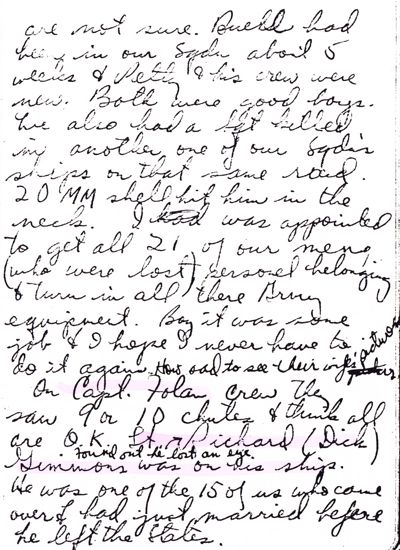 are not sure. Buehl had
been in our Sqdn about 5
weeks & Petty & his crew were
new. Both were good boys.
We also had a Sgt killed
in another one of our Sqdn's
ships on that same raid.
20 MM shell hit him in the
neck. I was appointed
to get all 21 of our mens
(who were lost) personel belonging
& turn in all there Army
equipment. Boy it was some
job & I hope I never have to
do it again. How sad to see their wife's pictures
On Capt. Folan crew They
saw 9 or 10 chutes & think all
are O.K. Lt. Richard (Dick)
Found out he lost an eye.
Gimmons was on his ship.
He was one of the 15 of us who came
over & had just married before
he left the States.